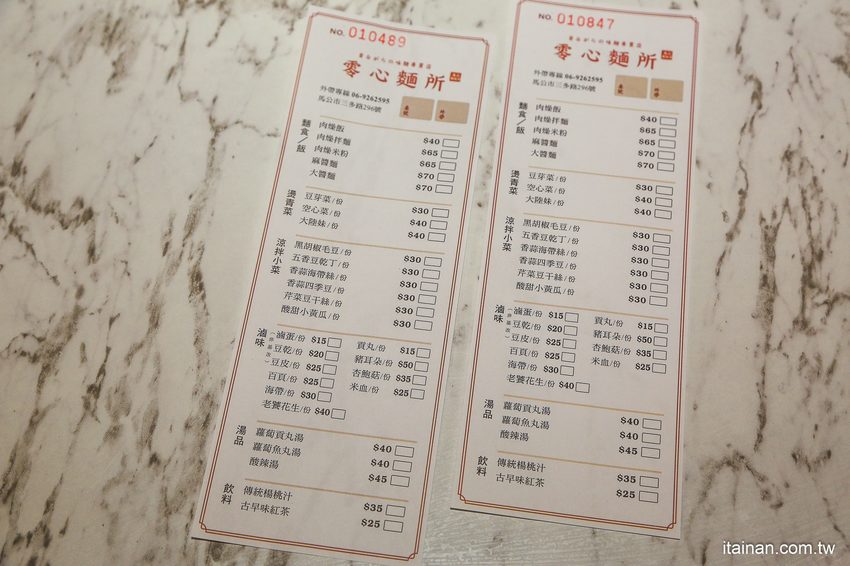 NO. 010489
零心麵所
外帶專線 06-9262595
馬公市三多路296號
麵食／飯
肉燥飯 $40
肉燥拌麵 $65
肉燥米粉 $65
麻醬麵 $70
大醬麵 $70
燙青菜
豆芽菜/份 $30
空心菜/份 $40
大陸妹/份 $40
涼拌小菜
黑胡椒毛豆/份 $30
五香豆乾丁/份 $30
香蒜海帶絲/份 $30
香蒜四季豆/份 $30
芹菜豆干絲/份 $30
酸甜小黃瓜/份 $30
滷味
滷蛋/份 $15 貢丸/份 $15
豆乾/份 $20 豬耳朵/份 $50
豆皮/份 $25 杏鮑菇/份 $35
百頁/份 $25 米血/份 $25
海帶/份 $30
老饕花生/份 $40
湯品
蘿蔔貢丸湯 $40
蘿蔔魚丸湯 $40
酸辣湯 $45
飲料
傳統楊桃汁 $35
古早味紅茶 $25
NO. 010847
零心麵所
外帶專線 06-9262595
馬公市三多路296號
麵食／飯
肉燥飯 $40
肉燥拌麵 $65
肉燥米粉 $65
麻醬麵 $70
大醬麵 $70
燙青菜
豆芽菜/份 $30
空心菜/份 $40
大陸妹/份 $40
涼拌小菜
黑胡椒毛豆/份 $30
五香豆乾丁/份 $30
香蒜海帶絲/份 $30
香蒜四季豆/份 $30
芹菜豆干絲/份 $30
酸甜小黃瓜/份 $30
滷味
滷蛋/份 $15 貢丸/份 $15
豆乾/份 $20 豬耳朵/份 $50
豆皮/份 $25 杏鮑菇/份 $35
百頁/份 $25 米血/份 $25
海帶/份 $30
老饕花生/份 $40
湯品
蘿蔔貢丸湯 $40
蘿蔔魚丸湯 $40
酸辣湯 $45
飲料
傳統楊桃汁 $35
古早味紅茶 $25
itainan.com.tw